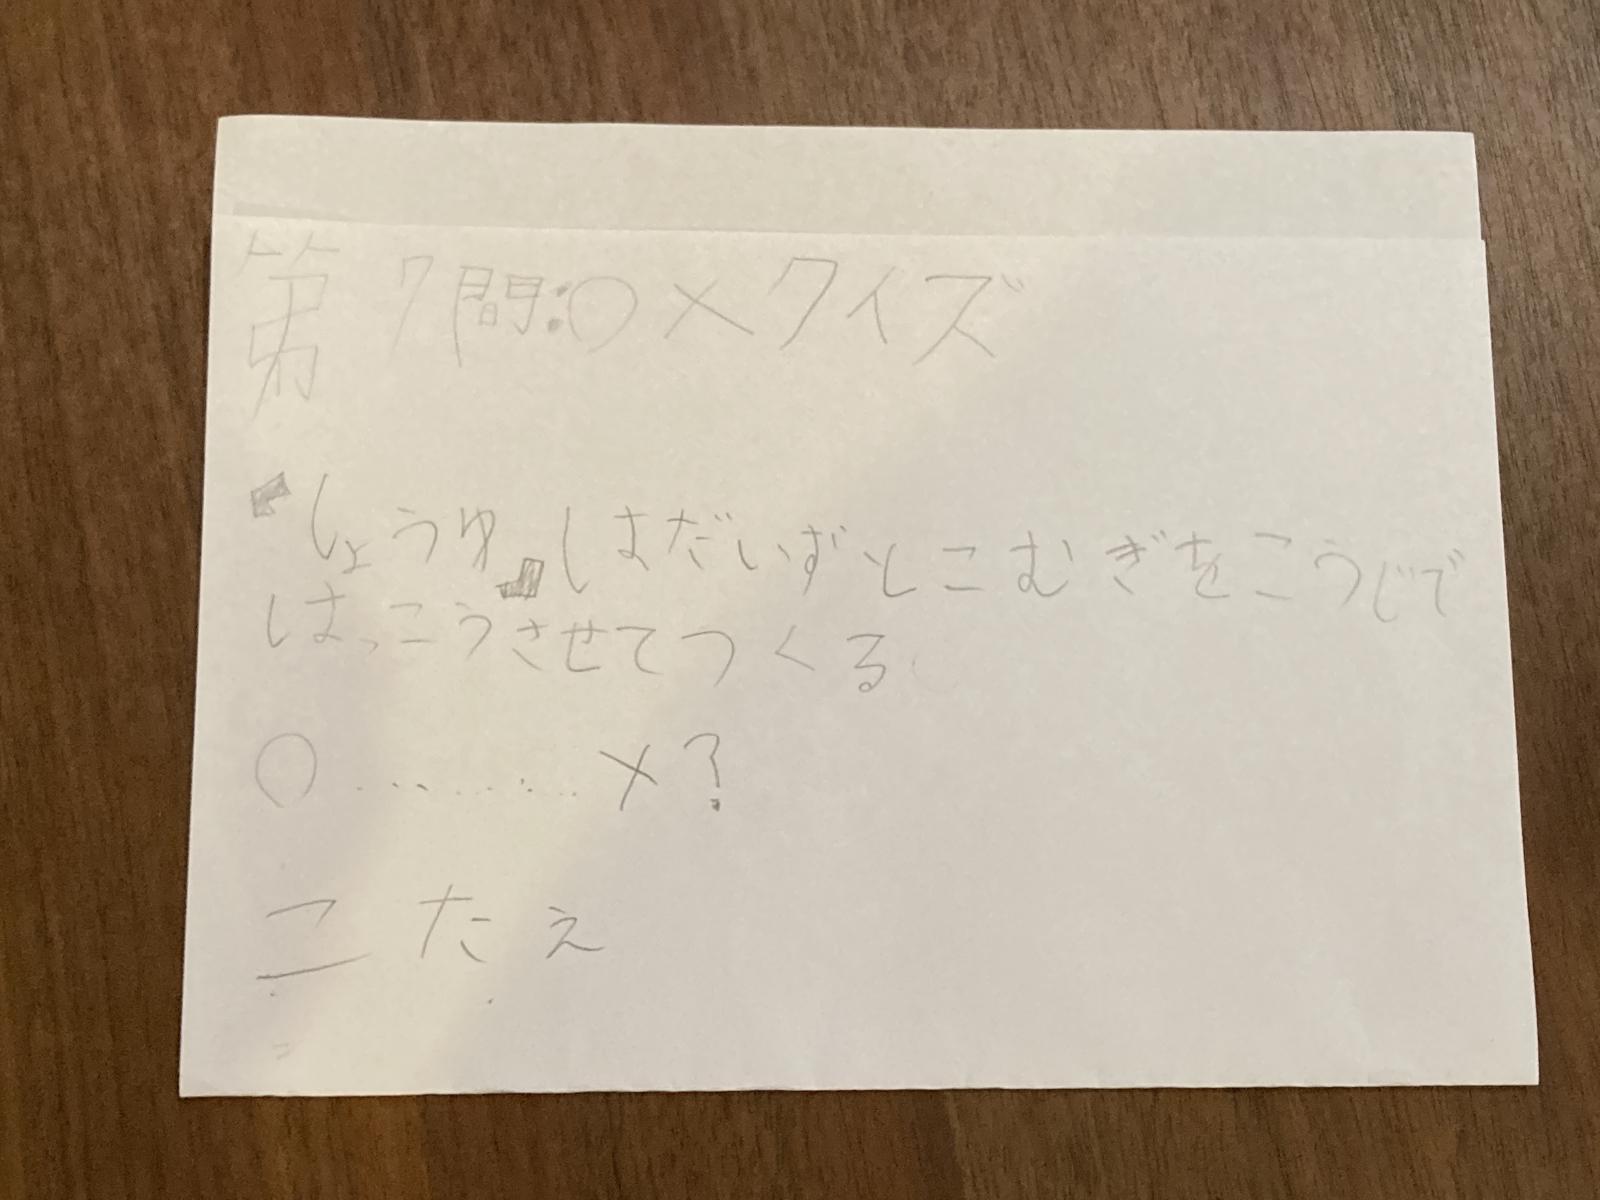 第7問:○×クイズ
「しょうゆ」はだいずとこむぎをこうじで
はっこうさせてつくる
○………×?
こたえ